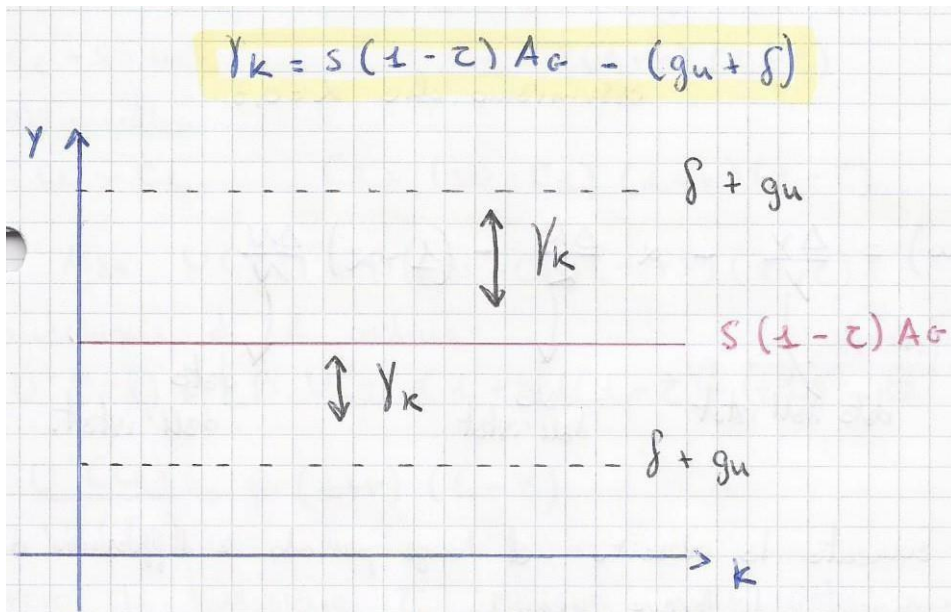 γK = s (1 - τ) AG - (gn + δ)
γ
δ + gn
γK
s (1 - τ) AG
γK
δ + gn
K